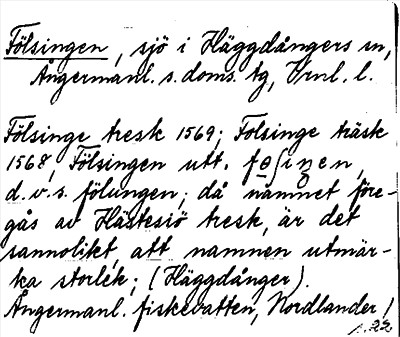 Fölsingen, sjö i Häggdångers sn,
Ångermanl. s. doms. tg, Vrnl. l.
Fölsinge tresk 1569; Folsinge träsk
1568, Fölsingen utt. 
d. v. s. fölungen; då namnet före-
gås av Hästesiö tresk, är det
sannolikt, att namnen utmär-
ka storlek; (Häggdånger).
Ångermanl. fiskevatten, Nordlander,
s. 22